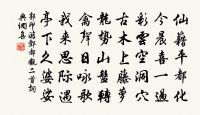 仙籍平都化
今晨喜一過
彩雲空洞穴
古木上藤蘿
龍勢山
禽日詠歌
我來思際遇
亭下久婆娑
郭印游酆都觀二首詞
典網喜